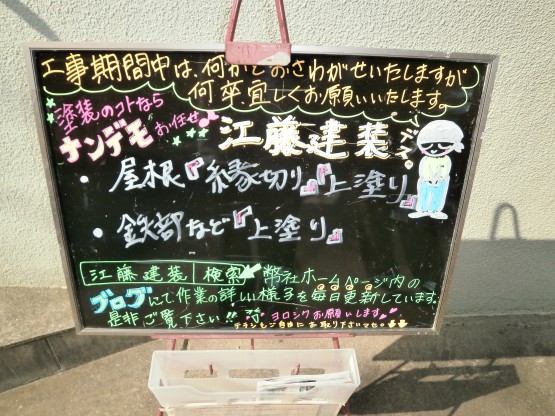 工事期間中は、何かとおさわがせいたしますが
何卒宜しくお願いいたします。
塗装のコトなら
ナンデモお任せ
江藤建装
デス
・屋根『縁切り』『上塗り』
・鉄部など『上塗り』
江藤建装 検索
弊社ホームページ内の
ブログにて作業の詳しい様子を毎日更新しています。
是非ご覧下さい!!
ヨロシクお願いします
チラシもご自由にお取り下さいませ。